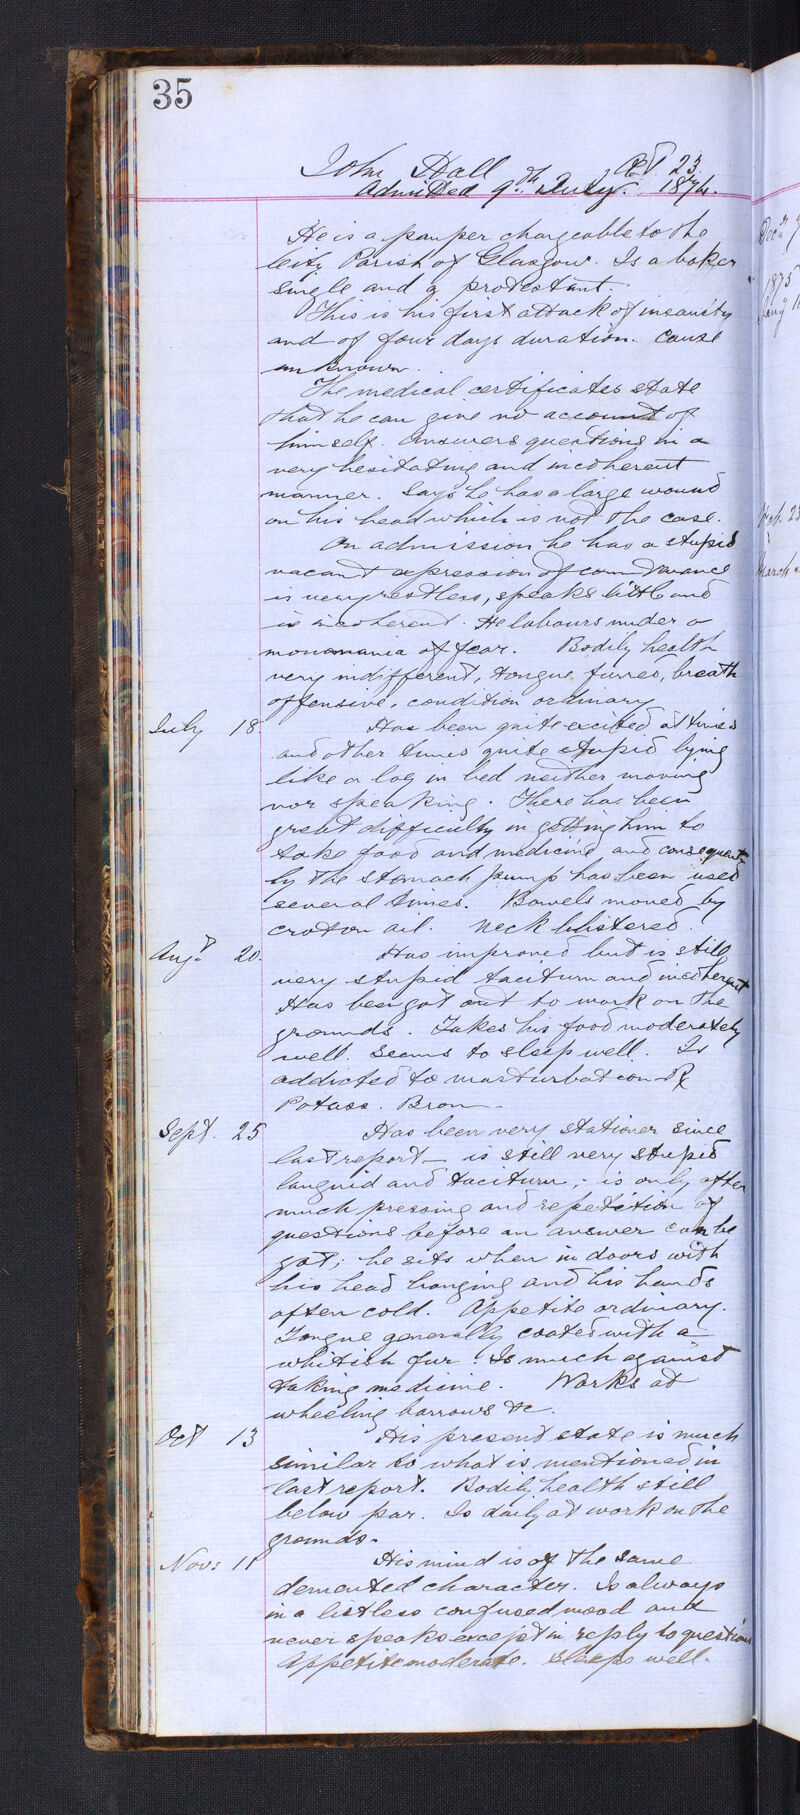 35
John Hall Æt 23
Admitted 9th July 1874.
He is a pauper chargeable to the
City Parish of Glasgow. Is a baker
single and a protestant.
This is his first attack of insanity
and of four days duration. Cause
unknown.
The medical certificates state
that he can give no account of
himself. Answers questions in a
very hesitating and incoherent
manner. Says he has a large wound
on his head which is not the case.
On admission he has a stupid
vacant expression of countenance
is very restless, speaks little and
is incoherent. He labours under a
monomania of fear. Bodily health
very indifferent, tongue furred, breath
offensive, condition ordinary.
July 18. Has been quite excited at times
and other times quite stupid lying
like a log in bed neither moving
nor speaking. There has been
great difficulty in getting him to
take food and medicine and consequent-
ly the stomach pump has been used
several times. Bowels moved by
croton oil. Neck blistered.
Augt 20. Has improved but is still
very stupid taciturn and incoherent
Has been got out to work on the
grounds. Takes his food moderately
well. Seems to sleep well. Is
addicted to masturbation ℞
Potass. Brom
Sept. 25 Has been very stationer since
last report – is still very stupid
languid and taciturn; is only after
much pressing and repetition of
questions before an answer can be
got; he sits when in doors with
his head hanging and his hands
often cold. Appetite ordinary.
Tongue generally coated with a
whitish fur. Is much against
taking medicine. Works at
wheeling barrows &c.
Oct 13 His present state is much
similar to what is mentioned in
last report. Bodily health still
below par. Is daily at work on the
grounds.
Nov: 11 His mind is of the same
demented character. Is always
in a listless confused mood and
never speaks except in reply to questions
Appetite moderate. Sleeps well.
1875